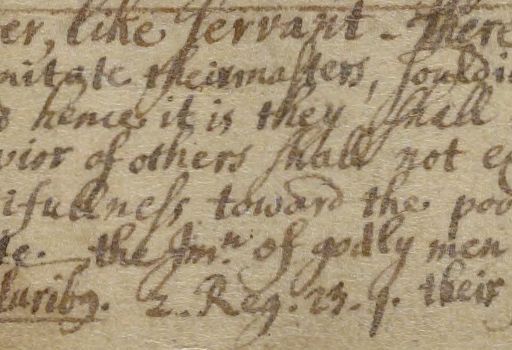 er, like servant - There
mitate their masters, souldi
s hence it is they shall
vior of others shall not e
ifullness toward the poo
te. the Jm.n of godly men
turibq. 2. Reg. 23. 1. their